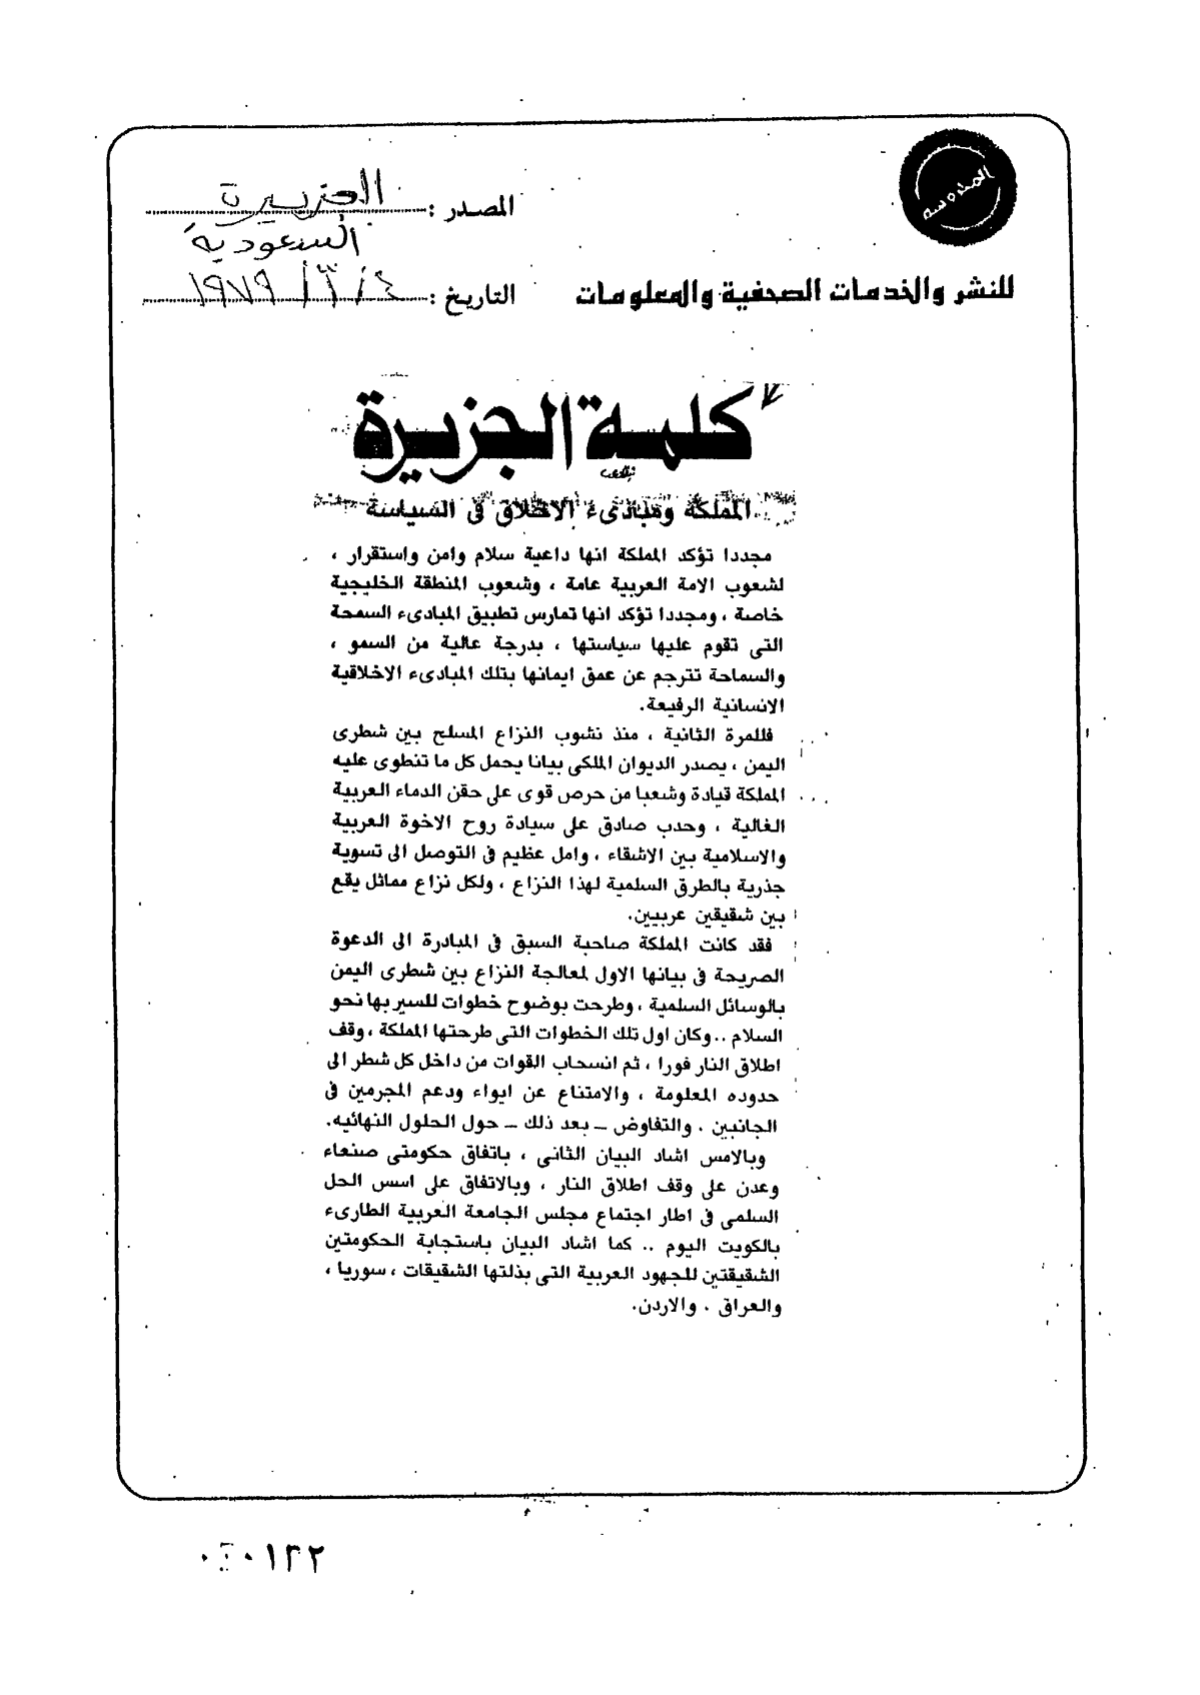 المصدر : الجزيرة
السعودية
للنشر والخدمات الصحفية والمعلومات
التاريخ : ٤ / ٣ / ١٩٧٩
كلمة الجزيرة
المملكة ومبادىء الاخلاق فى السياسة
مجددا تؤكد المملكة انها داعية سلام وامن واستقرار ،
لشعوب الامة العربية عامة ، وشعوب المنطقة الخليجية
خاصة ، ومجددا تؤكد انها تمارس تطبيق المبادىء السمحة
التى تقوم عليها سياستها ، بدرجة عالية من السمو ،
والسماحة تترجم عن عمق ايمانها بتلك المبادىء الاخلاقية
الانسانية الرفيعة.
فللمرة الثانية ، منذ نشوب النزاع المسلح بين شطرى
اليمن ، يصدر الديوان الملكى بيانا يحمل كل ما تنطوى عليه
المملكة قيادة وشعبا من حرص قوى على حقن الدماء العربية
الغالية ، وحدب صادق على سيادة روح الاخوة العربية
والاسلامية بين الاشقاء ، وامل عظيم فى التوصل الى تسوية
جذرية بالطرق السلمية لهذا النزاع ، ولكل نزاع مماثل يقع
بين شقيقين عربيين.
فقد كانت المملكة صاحبة السبق فى المبادرة الى الدعوة
الصريحة فى بيانها الاول لمعالجة النزاع بين شطرى اليمن
بالوسائل السلمية ، وطرحت بوضوح خطوات للسير بها نحو
السلام .. وكان اول تلك الخطوات التى طرحتها المملكة ، وقف
اطلاق النار فورا ، ثم انسحاب القوات من داخل كل شطر الى
حدوده المعلومة ، والامتناع عن ايواء ودعم المجرمين فى
الجانبين . والتفاوض ــ بعد ذلك ــ حول الحلول النهائيه.
وبالامس اشاد البيان الثانى ، باتفاق حكومتى صنعاء
وعدن على وقف اطلاق النار ، وبالاتفاق على اسس الحل
السلمى فى اطار اجتماع مجلس الجامعة العربية الطارىء
بالكويت اليوم .. كما اشاد البيان باستجابة الحكومتين
الشقيقتين للجهود العربية التى بذلتها الشقيقات ، سوريا ،
والعراق . والاردن.